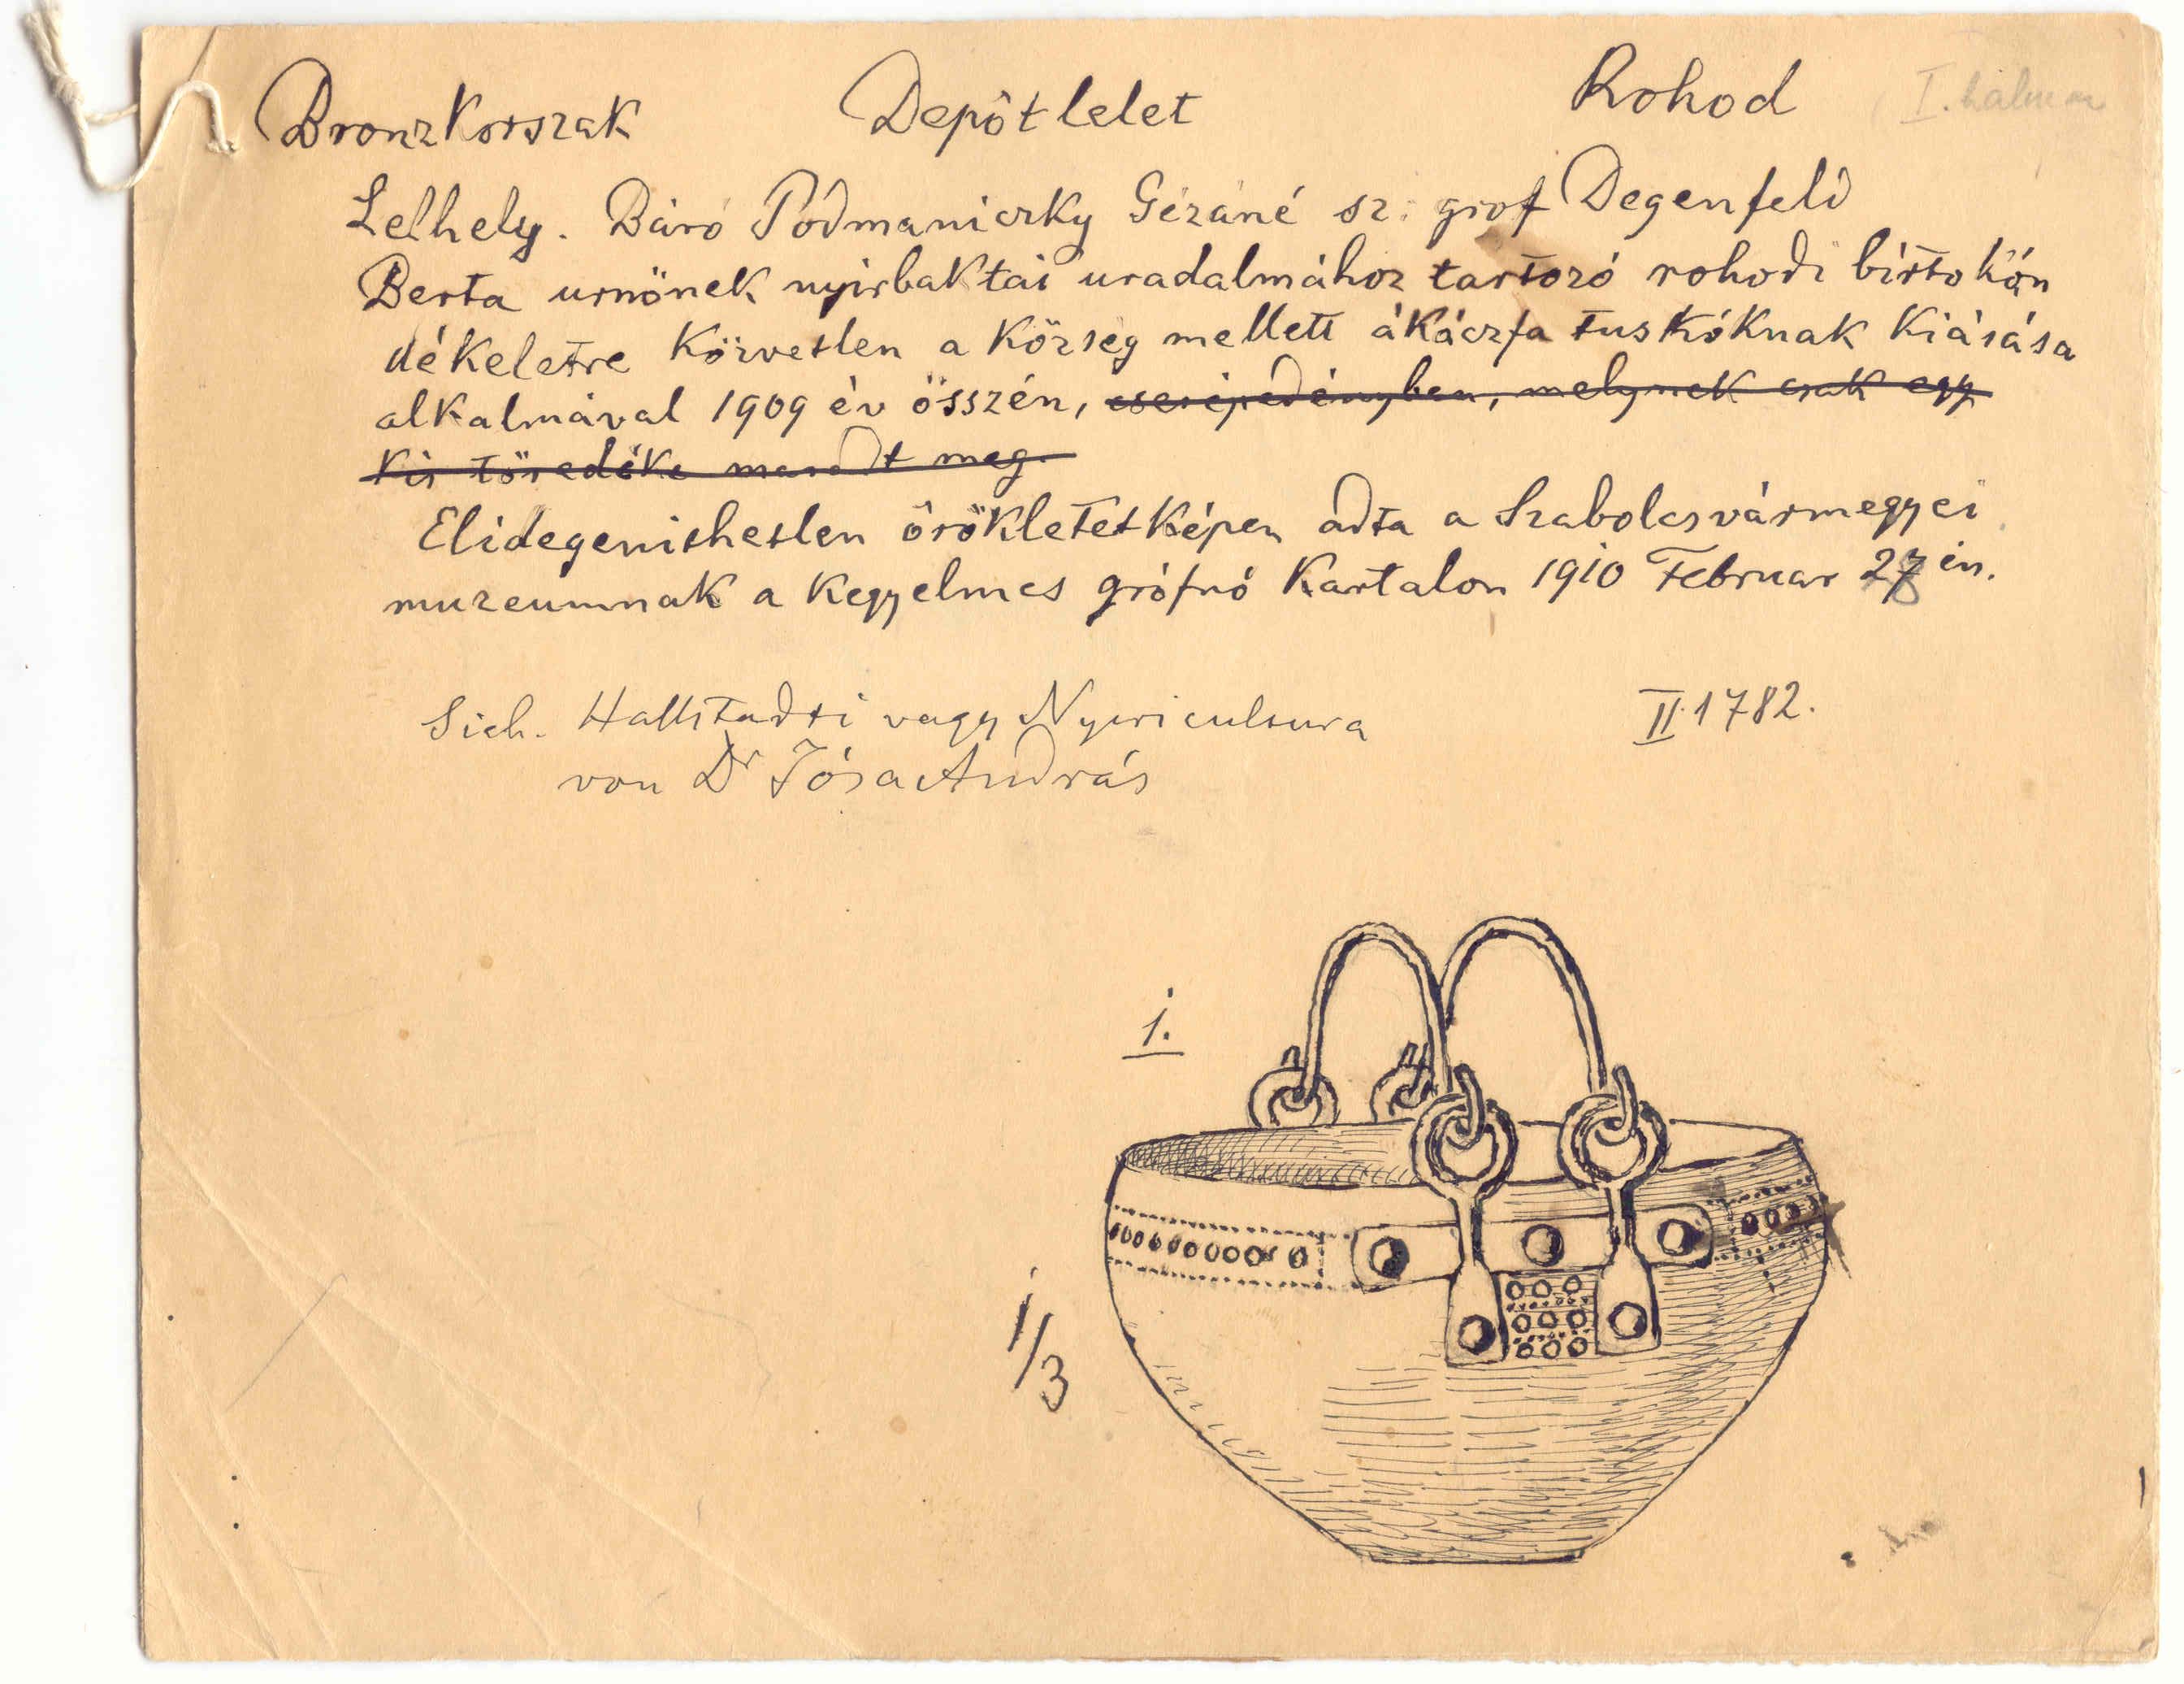 Bronzkorszak Depôtlelet Rohod I. halmaz
Lelhely. Báró Podmaniczky Gézáné sz: grof Degenfeld
Berta urnönek nyirbaktai uradalmához tartozó rohodi birtokán
dékeletre közvetlen a község mellett ákáczfa tuskóknak kiásása
alkalmával 1909 év összén, cserépedényben, melynek csak egy
kis töredéke maradt meg.
Elidegenithetlen örökletétképen adta a Szabolcsvármegyei
muzeumnak a kegyelmes grófnó Kartalon 1910 Februar én.
Sieh. Hallstadti vagy Nyiricultura II.1782.
von Dr Jósa András
1.
1/3